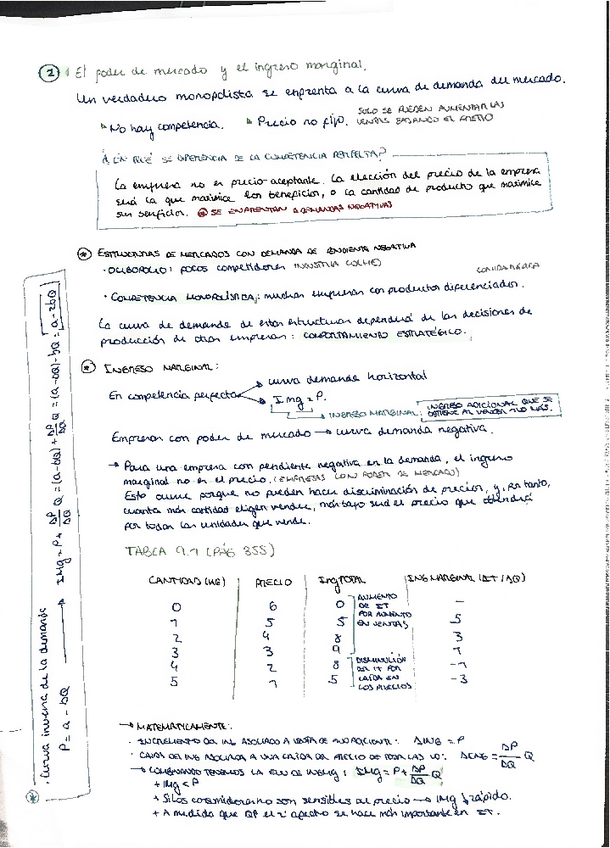 2 El poder de mercado y el ingreso marginal.
Un verdadero monopolista se enfrenta a la curva de demanda del mercado.
No hay competencia. Precio no fijo. SOLO SE PUEDEN AUMENTAR LAS
VENTAS BAJANDO EL PRECIO
¿EN QUÉ SE DIFERENCIA DE LA COMPETENCIA PERFECTA?
La empresa no es precio-aceptante. La elección del precio de la empresa
será la que maximice los beneficios, o la cantidad de producto que maximice
sus beneficios. SE ENFRENTAN A DEMANDAS NEGATIVAS
* ESTRUCTURAS DE MERCADOS CON DEMANDA DE PENDIENTE NEGATIVA
· OLIGOPOLIO: POCOS competidores INDUSTRIA COCHES
· COMPETENCIA MONOPOLÍSTICA: muchas empresas con productos diferenciados.
La curva de demanda de estas estructuras dependerá de las decisiones de
producción de otras empresas: COMPORTAMIENTO ESTRATÉGICO.
* INGRESO MARGINAL:
En competencia perfecta → curva demanda horizontal
→ Img = P.
INGRESO MARGINAL: INGRESO ADICIONAL QUE SE
OBTIENE AL VENDER 1 UD MÁS.
Empresas con poder de mercado → curva demanda negativa.
→ Para una empresa con pendiente negativa en la demanda, el ingreso
marginal no es el precio. (EMPRESAS CON PODER DE MERCADO)
Esto ocurre porque no pueden hacer discriminación de precios, y, por tanto,
cuanta más cantidad eligen vender, más bajo será el precio que obtendrá
por todas las unidades que vende.
TABLA 9.1 (PÁG 355)
CANTIDAD (MG) PRECIO ING TOTAL ING MARGINAL (IT/ΔQ)
0 6 0 AUMENTO –
DE IT
1 5 5 POR AUMENTO 5
EN VENTAS
2 4 8 3
3 3 9 1
4 2 8 DISMINUCIÓN -1
DE IT POR
5 1 5 CAÍDA EN -3
LOS PRECIOS
→ MATEMÁTICAMENTE:
· INCREMENTO DEL ING ASOCIADO A VENTA DE UD ADICIONAL: ΔING = P
· CAÍDA DEL ING ASOCIADA A UNA CAÍDA DEL PRECIO DE TODAS LAS UD: ΔING = ΔP/ΔQ Q
→ COMBINANDO TENEMOS LA ECU DE INGMG: IMg = P + ΔP/ΔQ Q
+ IMg < P
+ Si los consumidores no son sensibles al precio → IMg ↓ rápido.
+ A medida que Q↑ el 2º efecto se hace más importante en IT.
* · Curva inversa de la demanda
P = a - bQ → IMg = P + ΔP/ΔQ Q = (a-bQ) + ΔP/ΔQ Q = (a-bQ) - bQ = a - 2bQ